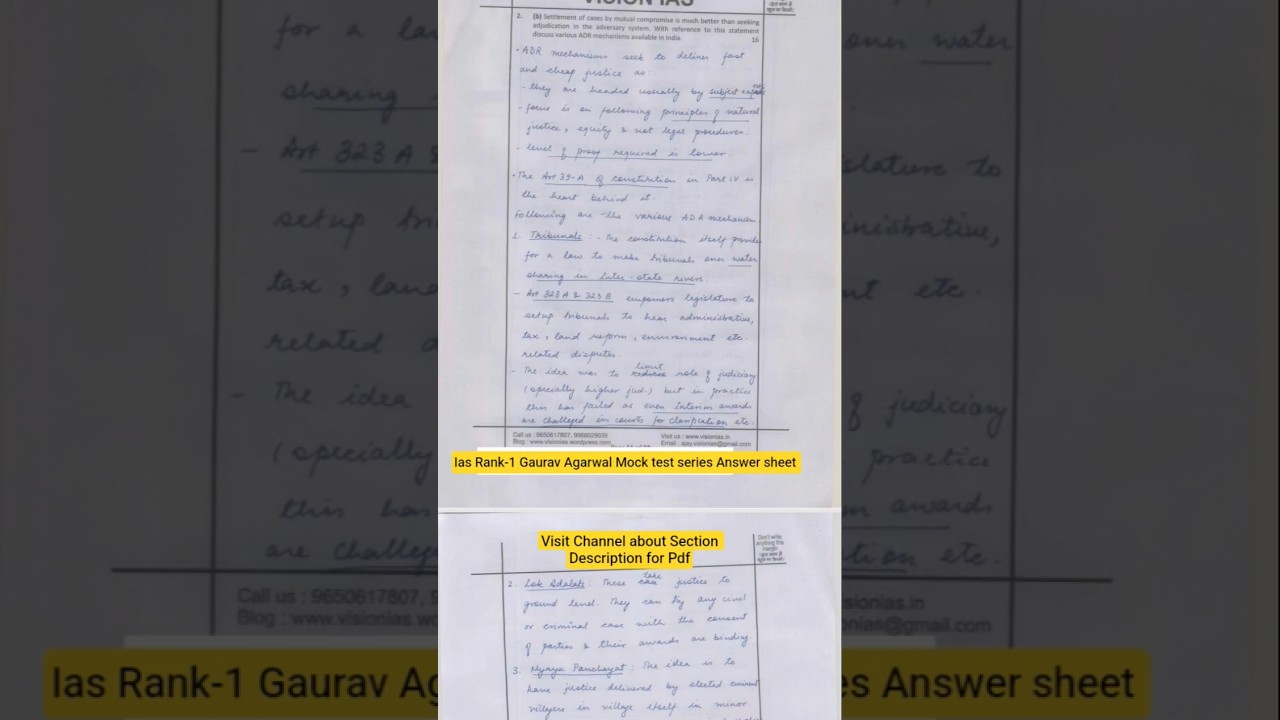 VISION IAS
2. (b) Settlement of cases by mutual compromise is much better than seeking
adjudication in the adversary system. With reference to this statement
discuss various ADR mechanisms available in India. 16
- ADR mechanisms seek to deliver fast
and cheap justice as:
- they are headed usually by subject experts
- focus is on following principles of natural
justice, equity & not legal procedures.
- level of proof required is lower
- The Art 39-A of constitution in Part IV is
the heart behind it.
Following are the various ADR mechanism
1. Tribunals : - The constitution itself provide
for a law to make tribunals over water
sharing in Inter-state rivers.
- Art 323 A & 323 B empowers legislature to
setup tribunals to hear administrative,
tax, land reform, environment etc
related disputes.
- The idea was to limit role of judiciary
(specially higher jud.) but in practice
this has failed as even interim awards
are challeged in courts for clarification etc.
Call us : 9650617807, 9968029039
Visit us : www.visionias.in
Blog : www.visionias.wordpress.com
Email : ajay.visionias@gmail.com
Ias Rank-1 Gaurav Agarwal Mock test series Answer sheet
Visit Channel about Section
Description for Pdf
Don't write
anything this
margin
2. Lok Adalats : These take justice to
ground level. They can try any civil
or criminal case with the consent
of parties & their awards are binding.
3. Nyaya Panchayat : The idea is to
have justice delivered by elected eminent
villagers in village itself in minor